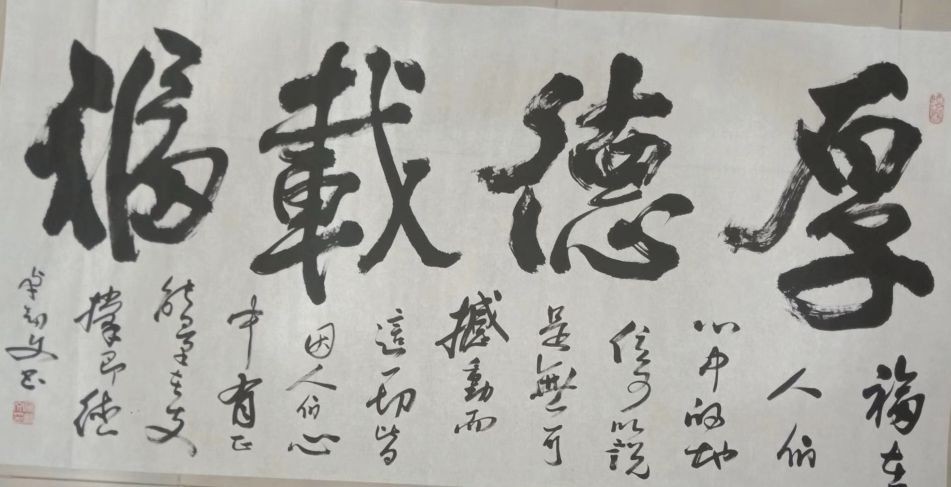 厚德載福
福在
人们
心中的地
位可以說
是無可
撼動而
這一切皆
因人们心
中有正
能量在支
撑即德
文书